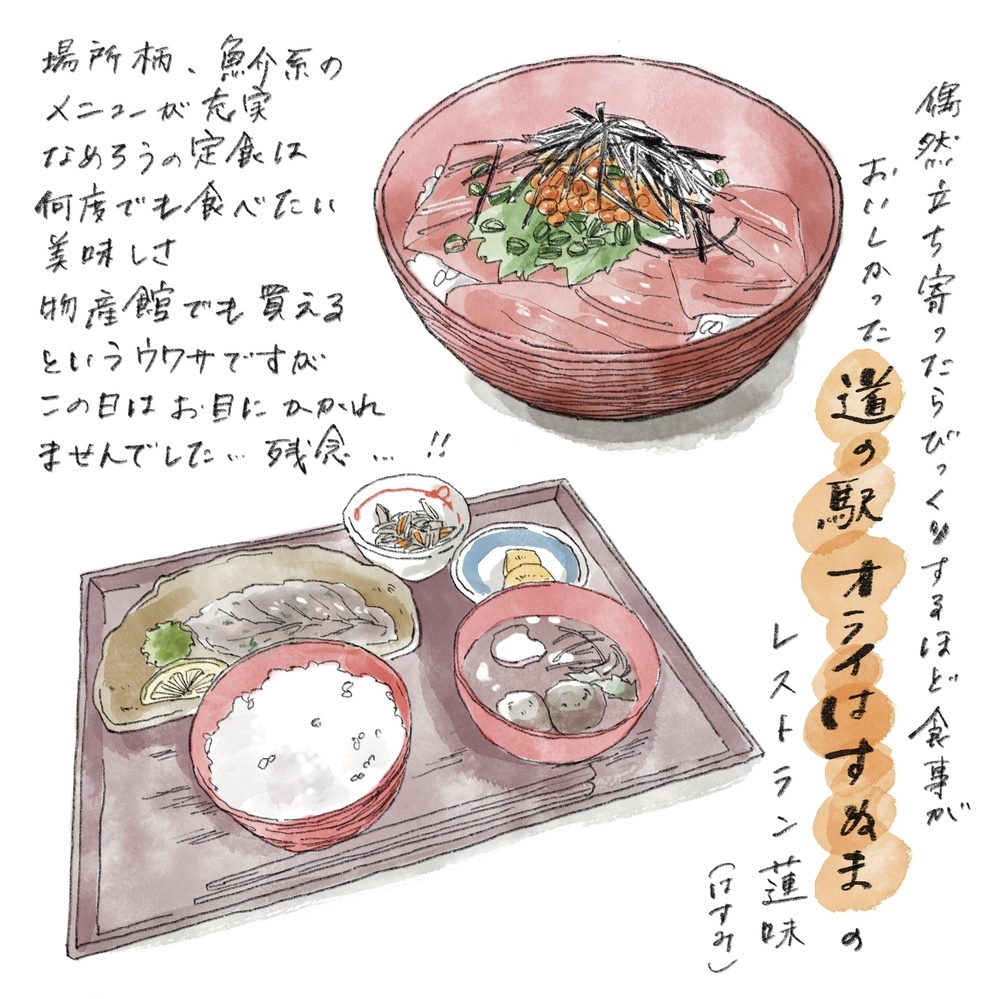 偶然立ち寄ったらびっくりするほど食事が
おいしかった
道の駅オライはすぬまの
レストラン蓮味
(はすみ)
場所柄、魚介系の
メニューが充実
なめろうの定食は
何度でも食べたい
美味しさ
物産館でも買える
というウワサですが
この日はお目にかかれ
ませんでした…残念…!!